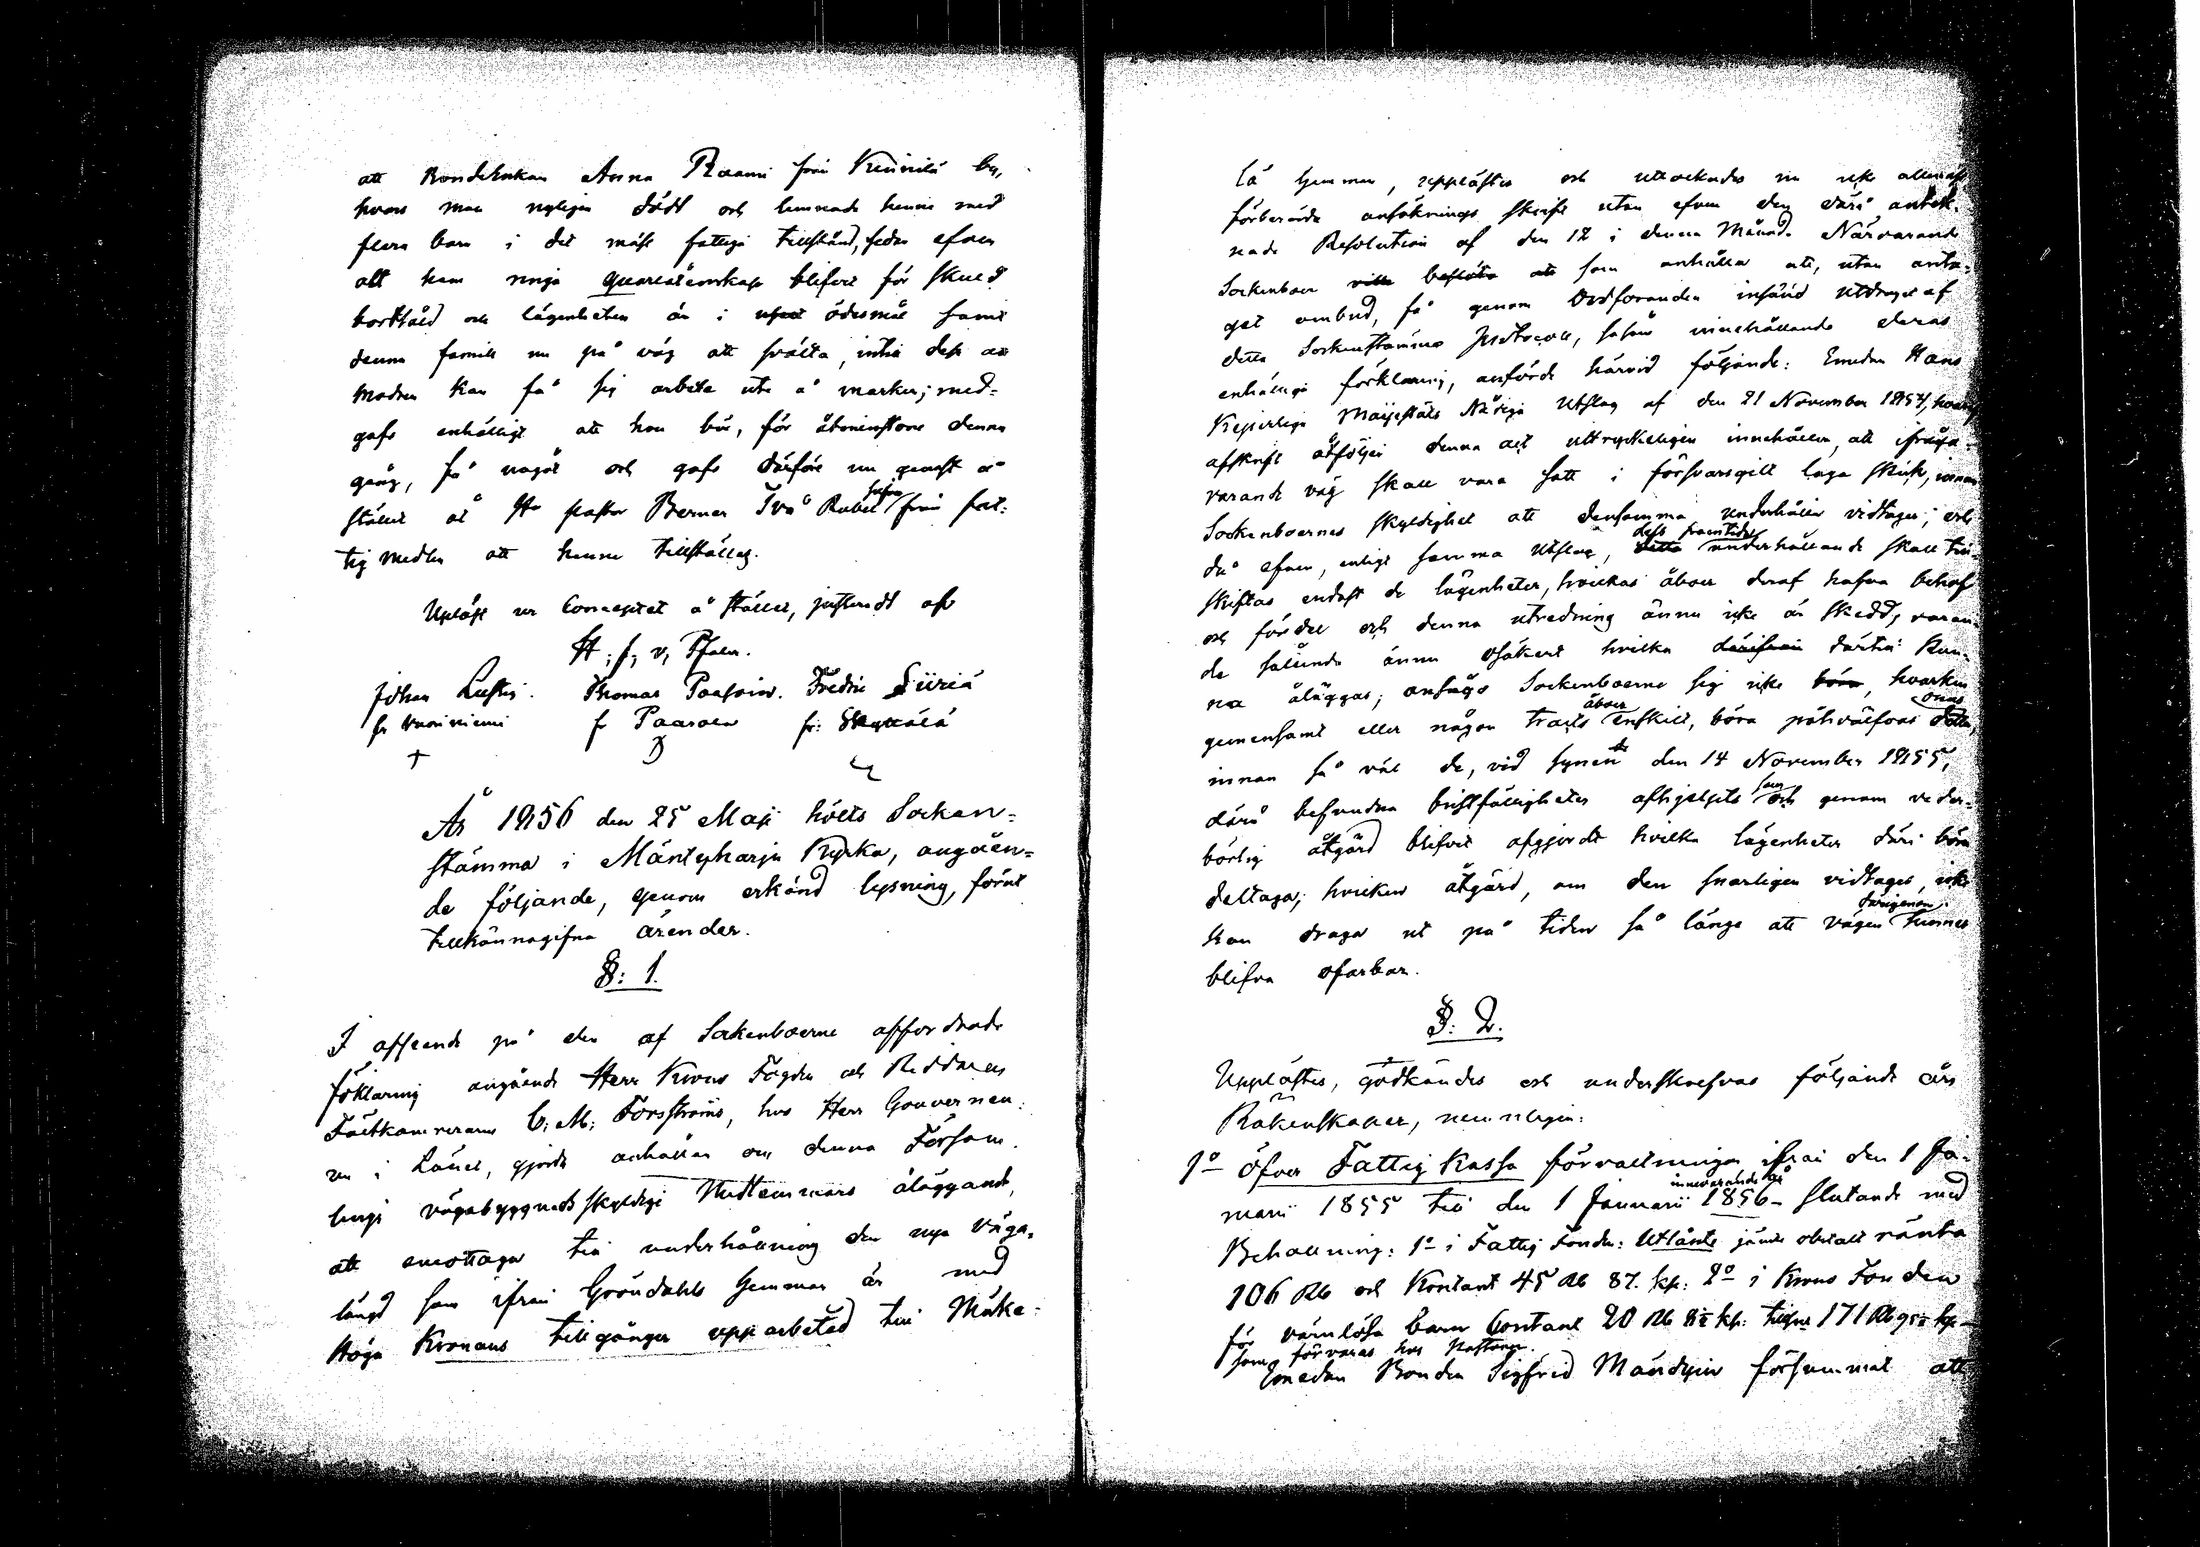 att Bondenkan Anna Raami från Kinnilä by,
hvars man nyligen dödt och lemnade henne med
flera barn i det mäst fattiga tillstånd, sedan efven
all hem niga quarlåtenskap blifvit för skuld
bortsåld och lägenheten är i ödesmål samt
denna familj nu på väg att svälta, intill dess att
modren kan få sig arbete ute å marken; med-
gafs enhälligt att hon bör, för åtminstone denna
gång, få något och gafs därföre nu genast å
stället åt Hr pastor Berner Två Rubel Silfver från fat-
tig medlen att henne tillställas.
Upläst ur Conceptet å stället, justeradt af
H. f. v. Pfaler.
Johan Lustig. Thomas Paasoin. Fredric Siiriä
fr Vuoriniemi fr Paasola fr: Skyttälä
År 1856 den 25 Maji hölts Socken-
stämma i Mäntyharju Kyrka, angåen-
de följande, genom erkänd lysning, förut
tillkännagifna ärender.
§: 1.
I afseende på den af Sockenboerne affordrade
föklaring angående Herr Krono Fogden och Riddaren
Fältkamrerarens C. M. Forsströms, hos Herr Gouverneu-
ren i Länet, gjorde anhållan om denna Försam-
lings vägabyggnadsskyldige Medlemmars åläggande,
att emottaga till underhållning den nya väga-
längd som ifrån Gröndahls Hemman är med
Höga Kronans tillgångar upparbetad till Mäke-
lä Hemman, upplästes och uttolkades nu icke allenast
förberörde ansöknings skrift utan efven den därå anteck-
nade Resolution af den 12 i denna Månad. Närvarande
Sockenboer ville besluta att som anhålla att, utan anta-
get ombud, få genom Ordföranden insänd utdraget af
detta Sockenstämmo Protocoll, såsom innehållande deras
enhälliga förklaring, anförde härvid följande: Emedan Hans
Kejserliga Majestäts Nådiga Utslag af den 21 November 1854, hvaraf
afskrift åtföljer denna act uttryckeligen innehåller, att ifråga-
varande väg skall vara satt i försvarsgillt laga skick, innan
Sockenboernes skyldighet att densamma underhålla vidtager; och
då efven, enligt samma Utslag, detta dess framtida underhållande skall till-
skiftas endast de lägenheter, hvilkas åboer deraf hafva behof
och fördel och denna utredning ännu icke är skedd, varan-
de sålunda ännu osäkert hvilka därifrån därtill kun-
na åläggas; ansågo Sockenboerne sig icke böra, hvarken
gemensamt eller någon tracts åboer enskilt, böra påhvälfvas detta onus,
innan så väl de, vid synen den 14 November 1855,
därå befundna bristfälligheter afhjelpts som och genom veder-
börlig åtgärd blifvit afgjordt hvilka lägenheter däri böra
deltaga; hvilken åtgärd, om den snarligen vidtages, icke
kan draga ut på tiden så länge att vägen därigenom hinner
blifva ofarbar.
§: 2.
Upplästes, godkändes och underskrefvos följande års
Räkenskaper, nemligen:
1o öfver Fattig Kassa förvaltningen ifrån den 1 Ja-
nuari 1855 till den 1 Januarii innevarande år 1856 slutande med
Behållning: 1o i Fattig Fonden: Utlånte jämte obetalt ränta
106 Rb och Kontant 45 Rb 87. kp: 2o i Krono Fonden
för värnlösa barn Contant 20 Rb kp: tillsne 171 Rb kp
som förvaras hos Pastorn.
Emedan Bonden Sigfrid Mändyin försummat att